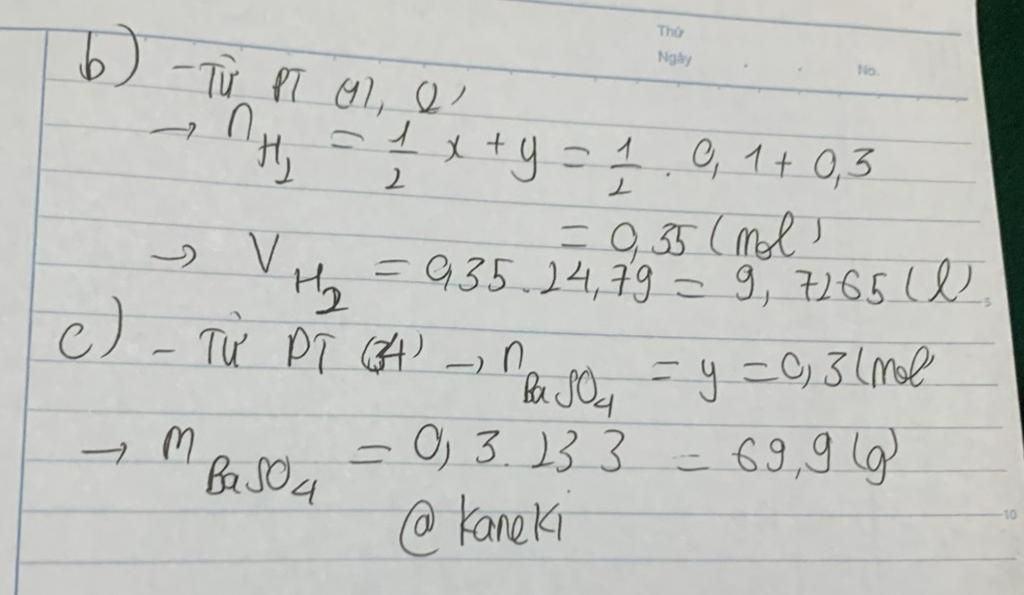 Thứ
Ngày
No.
b) - Từ PT (1), (2)
→ nH2 = 1/2 x + y = 1/2 . 0,1 + 0,3
= 0,35 (mol)
→ VH2 = 0,35 . 24,79 = 9,7265 (l)
c) - Từ PT (4) → nBaSO4 = y = 0,3 (mol
→ mBaSO4 = 0,3 . 233 = 69,9 (g)
@ Kaneki
10